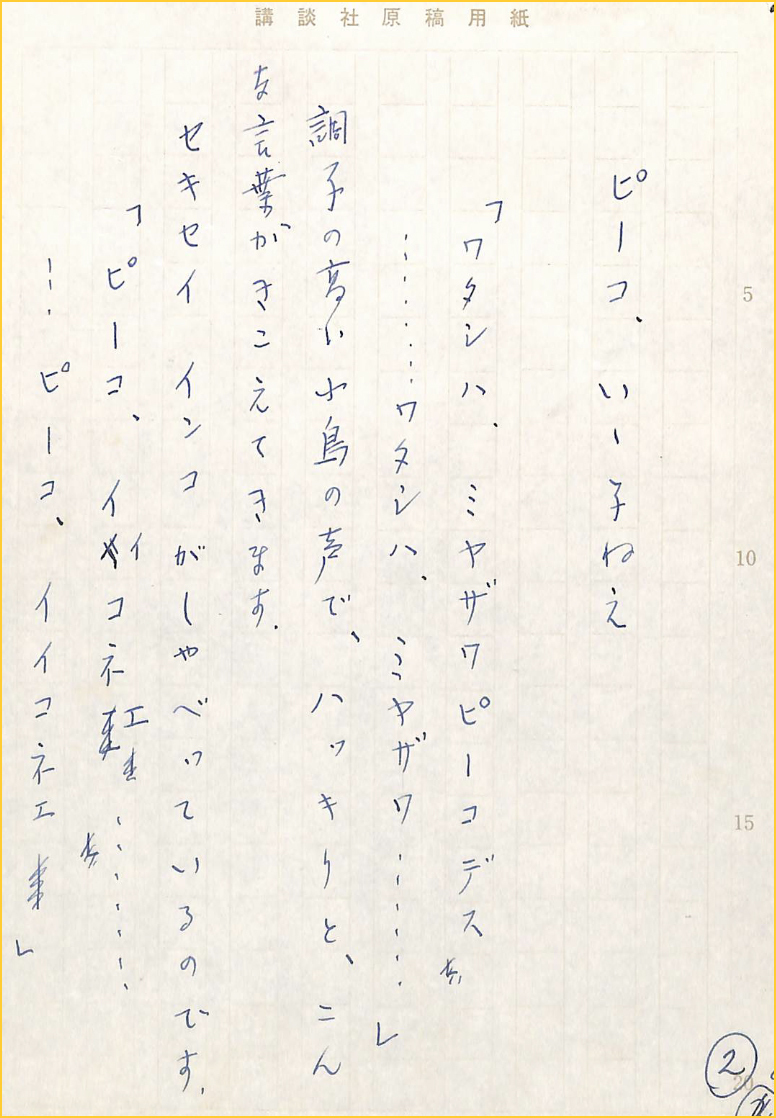 講談社原稿用紙
ピーコ、いー子ねえ
「ワタシハ、ミヤザワピーコデス
………ワタシハ、ミヤザワ………」
調子の高い小鳥の声で、ハッキリと、こん
な言葉がきこえてきます。
セキセイインコがしゃべっているのです。
「ピーコ、イイコネエ………
…ピーコ、イイコネエ」
5
10
15
20
2